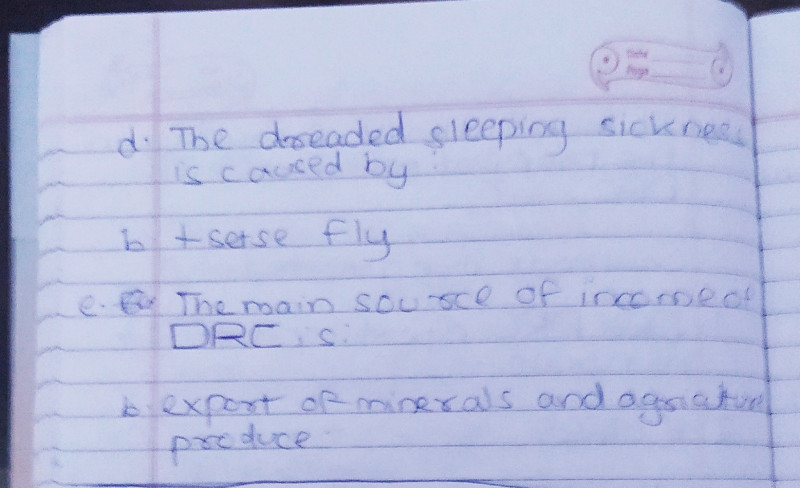 Date
Page
d. The dreaded sleeping sickness
is caused by :
b tsetse fly
e. The main source of income of
DRC is:
b. export of minerals and
produce